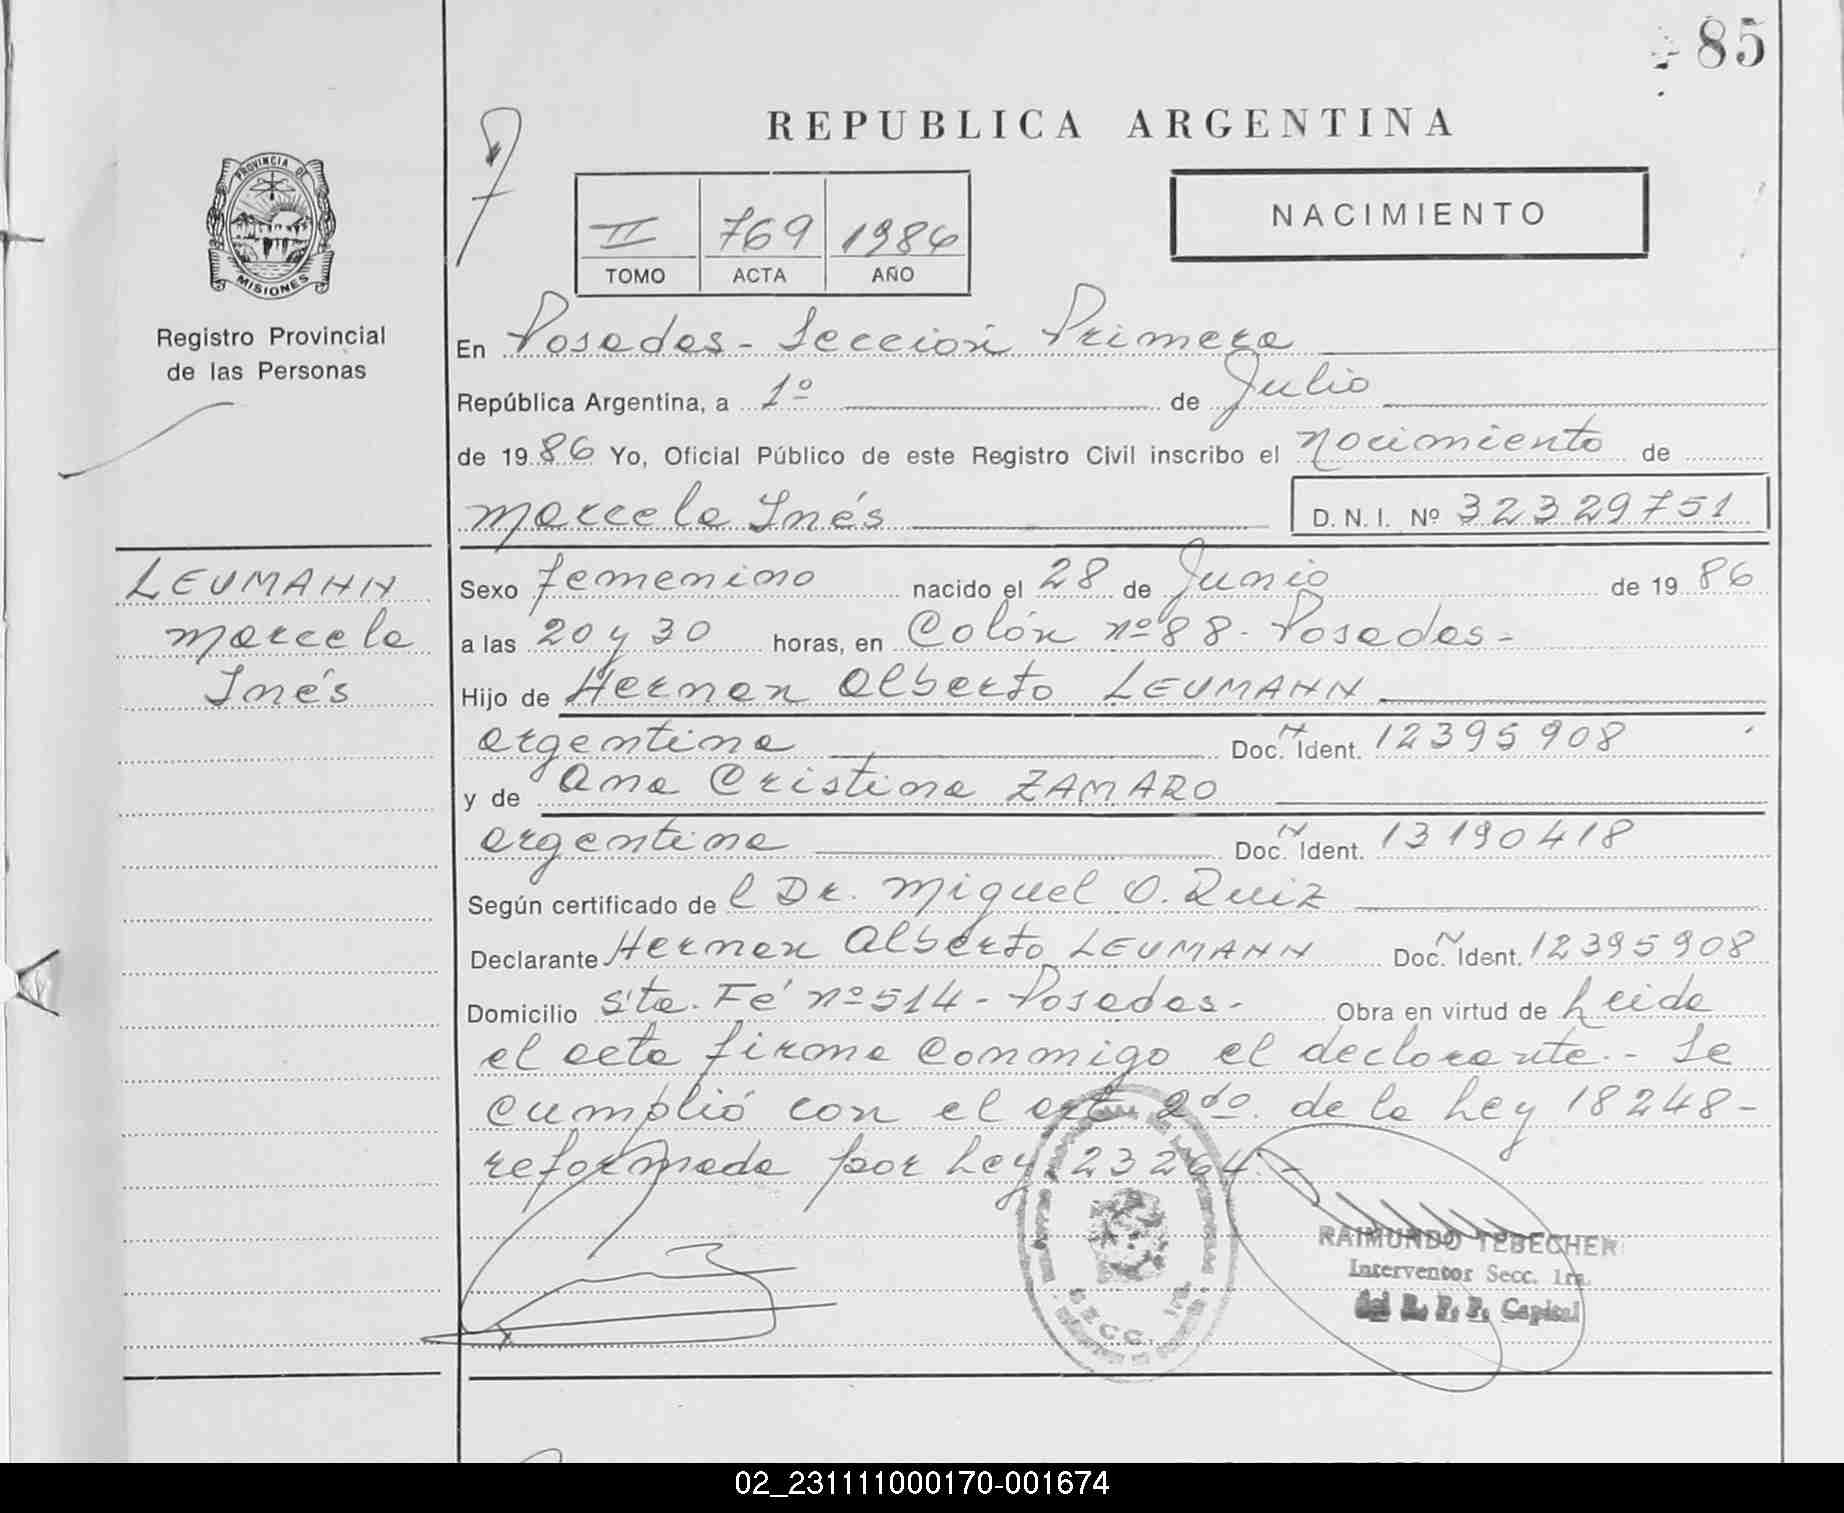 85
REPUBLICA ARGENTINA
PROVINCIA DE
MISIONES
Registro Provincial
de las Personas
II 769 1986
TOMO ACTA AÑO
NACIMIENTO
En Posadas - Sección Primera
República Argentina, a 1º de Julio
de 1986 Yo, Oficial Público de este Registro Civil inscribo el nacimiento de
Marcela Inés D.N.I. Nº 32329751
LEUMANN
Marcela
Inés
Sexo femenino nacido el 28 de Junio de 1986
a las 20 y 30 horas, en Colón nº 88 - Posadas -
Hijo de Hernan Alberto LEUMANN
argentina Doc. Ident. 12395908
y de Ana Cristina ZAMARO
argentina Doc. Ident. 13190418
Según certificado del Dr. Miguel O. Ruiz
Declarante Hernan Alberto LEUMANN Doc. Ident. 12395908
Domicilio Sta. Fé nº 514 - Posadas - Obra en virtud de Leida
el acta firma conmmigo el declarante. - Se
cumplió con el art 2do. de la Ley 18248 -
reformada por Ley 23264. -
SECC. 1ra.
RAIMUNDO TEBECHER
Interventor Secc. 1ra.
del R. P. P. Capital
02_231111000170-001674